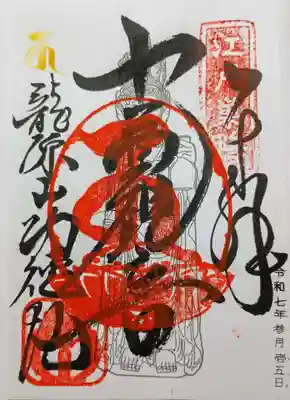 奉拝
令和七年 参月 壱五日
十一面観音
龍原山功徳院